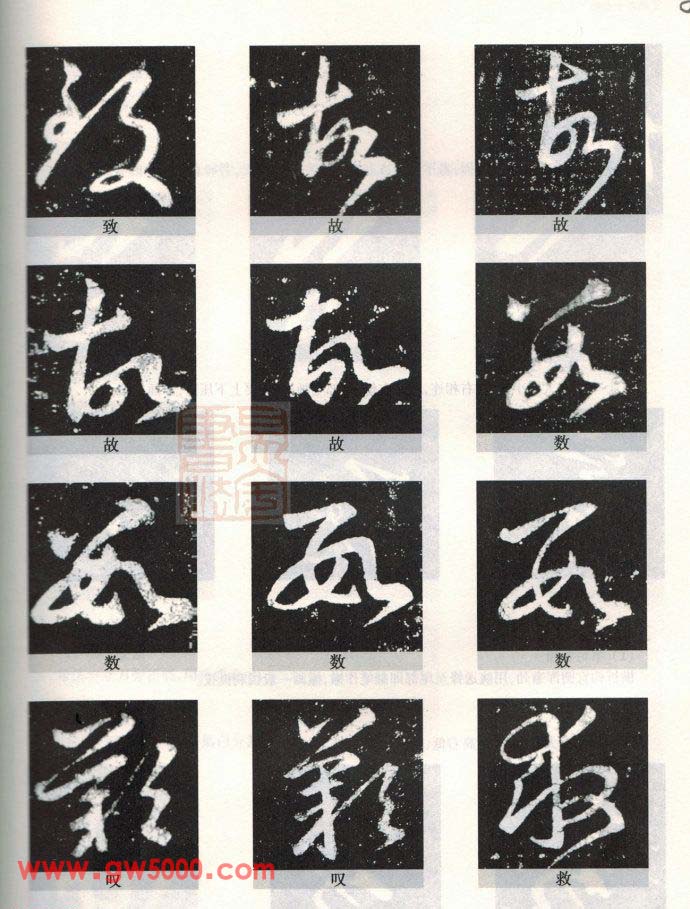 致 故 故
故 故 数
数 数 数
叹 叹 救
www.gw5000.com